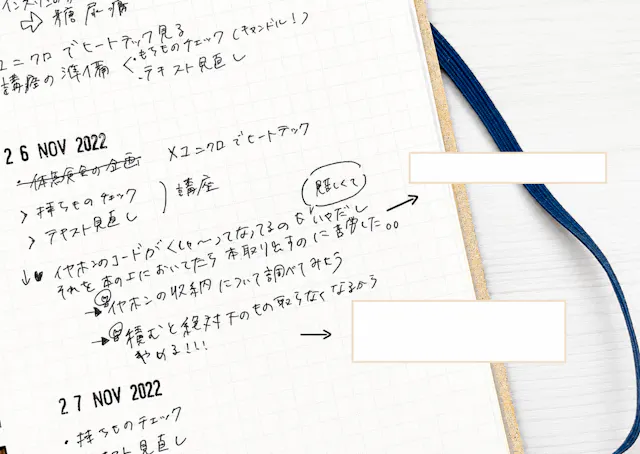 糖尿病
ユニクロでヒートテック見る
講座の準備 < ・もちものチェック(キャンドル!)
・テキスト見直し
26 NOV 2022
・体験会の企画 ×ユニクロでヒートテック
> 持ちものチェック
> テキスト見直し ) 講座
見苦しくて
イヤホンのコードがくしゃ〜ってなってるのもいやだし
それを本の上においてたら本取り出すのに苦労した。。
→イヤホンの収納について調べてみよう
→積むと絶対下のもの取らなくなるから
やめる!!!
27 NOV 2022
・持ちものチェック
テキスト見直し